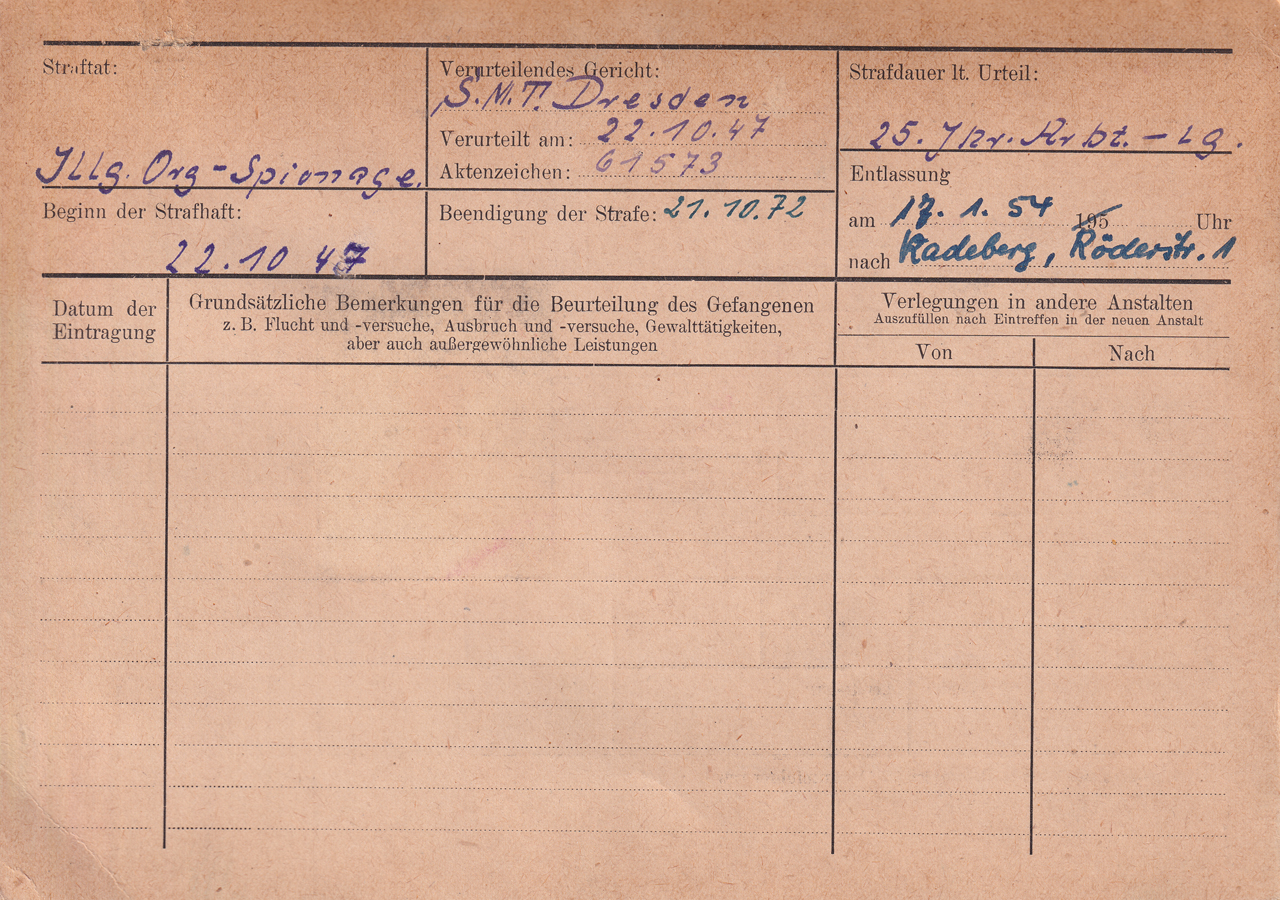 Straftat:
Illg. Org-Spionage.
Verurteilendes Gericht:
S.M.T. Dresden
Verurteilt am: 22.10.47
Aktenzeichen: 61573
Strafdauer lt. Urteil:
25. Jhr. Arbt.-Lg.
Beginn der Strafhaft:
22.10 47
Beendigung der Strafe: 21.10.72
Entlassung
am 17. 1. 54 195 Uhr
nach Radeberg, Röderstr. 1
Datum der
Eintragung
Grundsätzliche Bemerkungen für die Beurteilung des Gefangenen
z. B. Flucht und -versuche, Ausbruch und -versuche, Gewalttätigkeiten,
aber auch außergewöhnliche Leistungen
Verlegungen in andere Anstalten
Auszufüllen nach Eintreffen in der neuen Anstalt
Von Nach